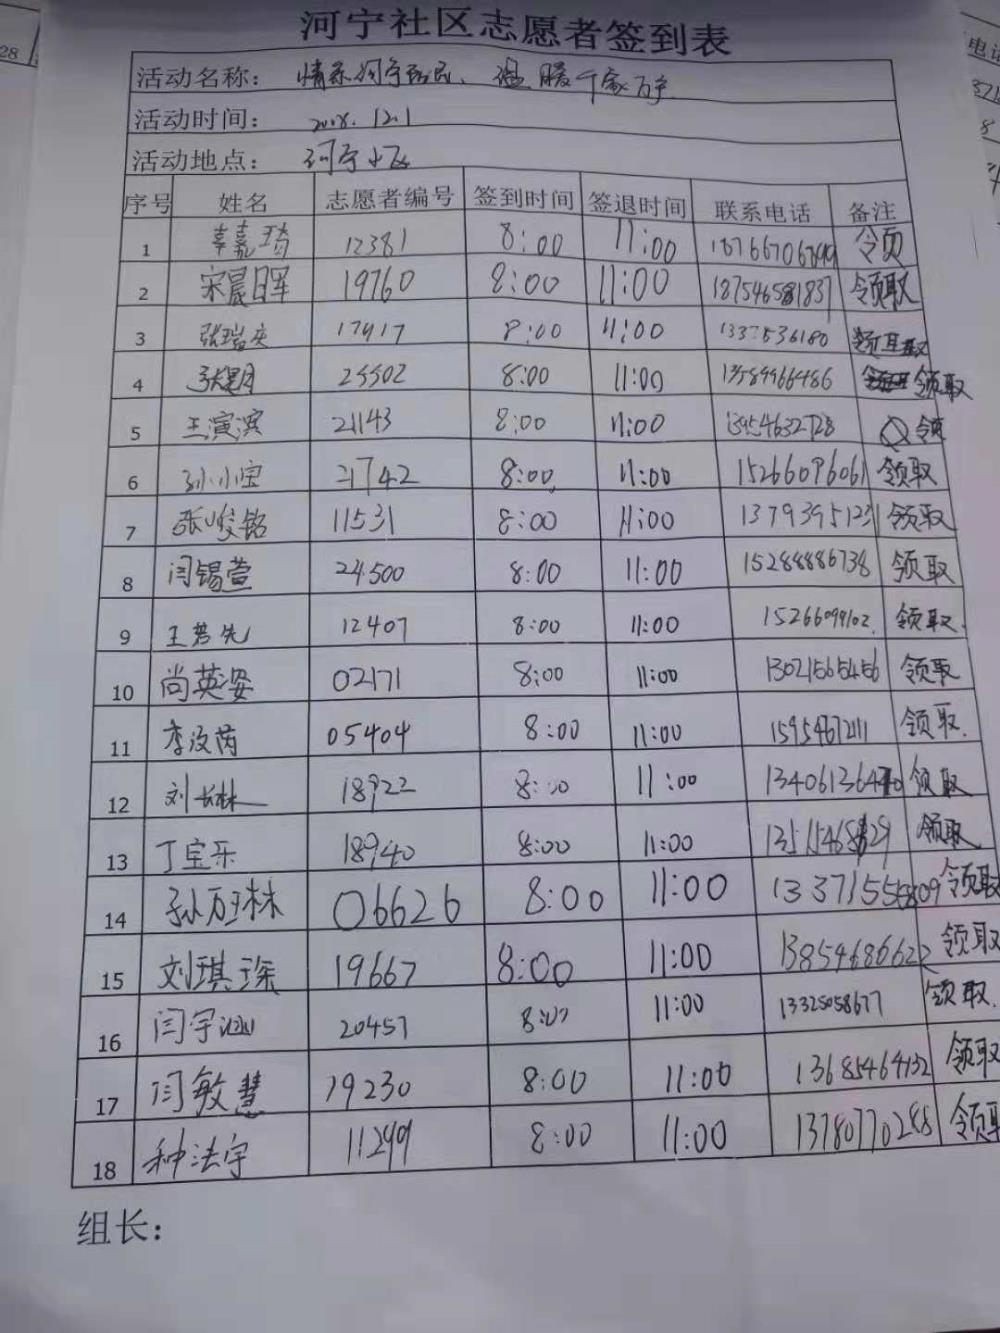 河宁社区志愿者签到表
活动名称： 情系河宁居民、温暖千家万户
活动时间： 2018.12.1
活动地点： 河宁小区
序号 姓名 志愿者编号 签到时间 签退时间 联系电话 备注
1 辛嘉琦 12381 8:00 11:00 领
2 宋晟日军 19760 8:00 11:00 187546581837 领取
3 17417 8:00 11:00 领取
4 8:00 11:00 13589966486 领取
5 王演滨 21143 8:00 11:00 13954632728 领
6 孙小宝 21742 8:00 11:00 15266096061 领取
7 张峻铭 11531 8:00 11:00 13793951231 领取
8 闫锡萱 24500 8:00 11:00 15288886738 领取
9 王若先 12407 8:00 11:00 15266099102 领取.
10 尚英姿 02171 8:00 11:00 13021565456 领取
11 李汶芮 05404 8:00 11:00 15954672111 领取.
12 刘长林 18922 8:00 11:00 领取
13 丁宝乐 18940 8:00 11:00 领取
14 孙万林 06626 8:00 11:00 领取
15 刘琪琛 19667 8:00 11:00 13854686622 领取
16 闫宇涵 20457 8:00 11:00 13325058677 领取.
17 闫敏慧 19230 8:00 11:00 13685464132 领取
18 种法宇 11299 8:00 11:00 13780770288 领取
组长：
28
电话